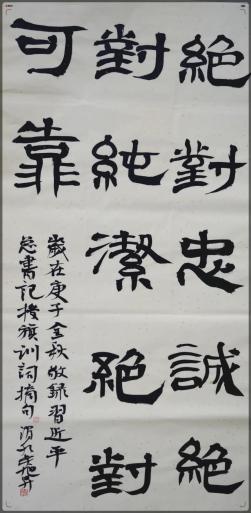 絕對忠誠絕
對純潔絕對
可靠
歲在庚子金秋敬錄習近平
总書记授旗训词摘句